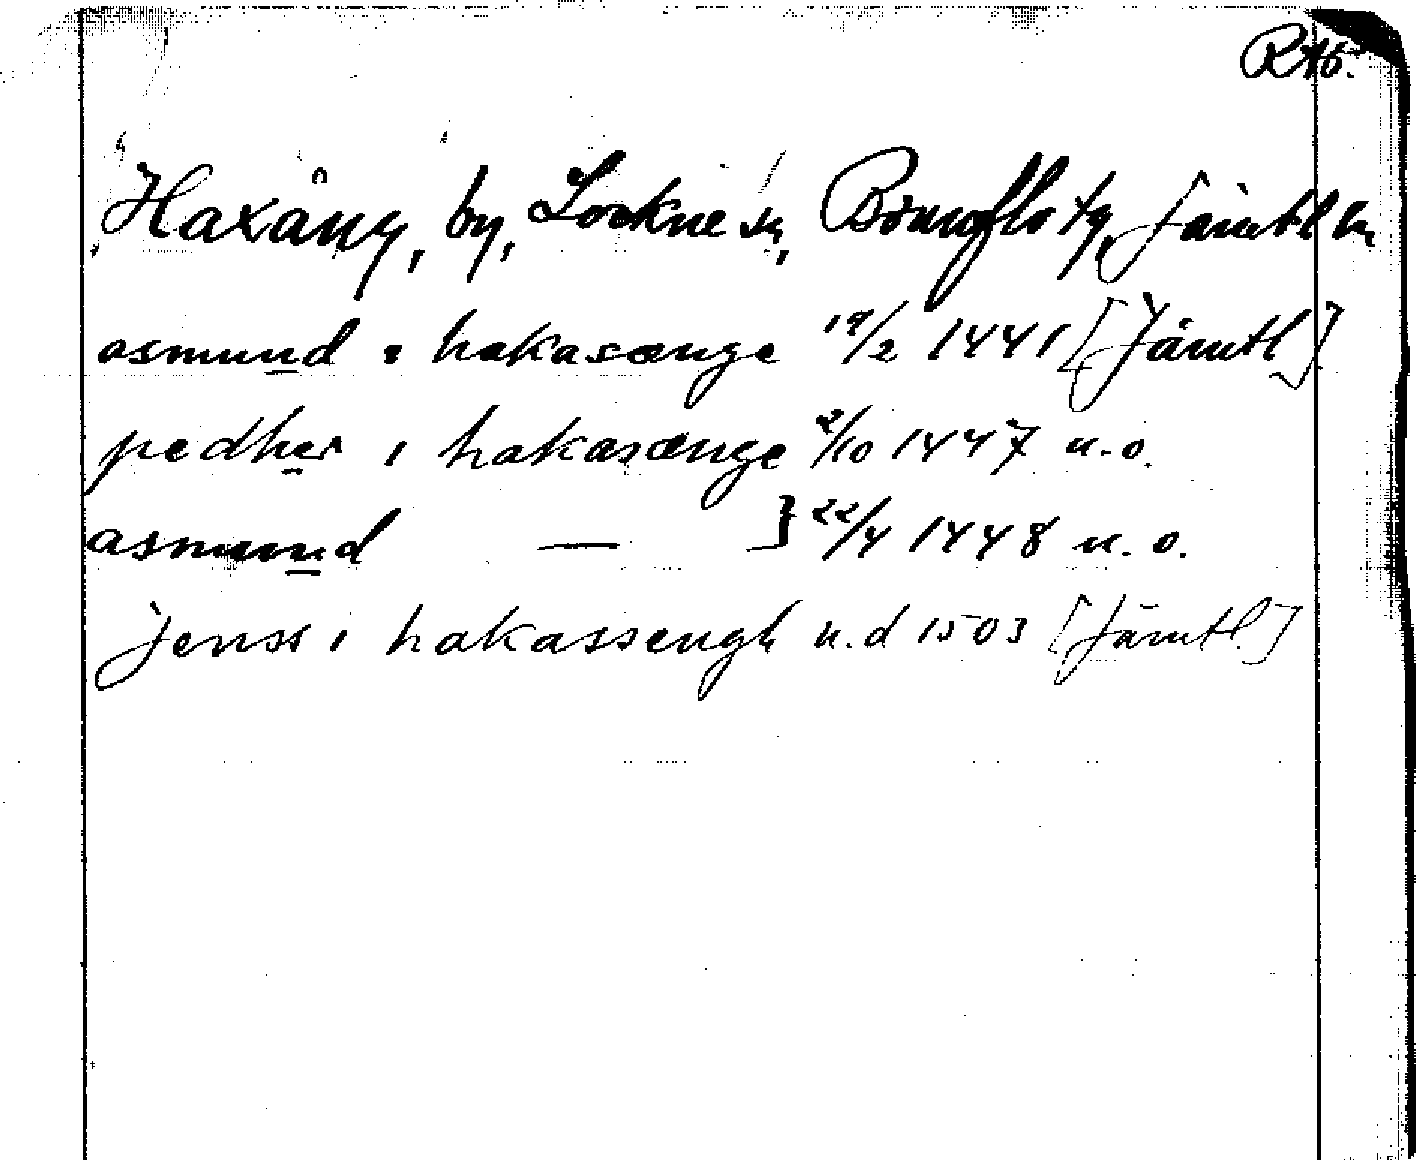 R A 6.
Haxäng, by, Lockne sn, Brunflo tg, Jämtl ln
asmund i hakasænge 19/2 1441 [Jämtl]
pedher i hakasænge 2/10 1447 u.o.
asmund — } 22/4 1448 u.o.
Jenss i hakassengh u.d 1503 [Jämtl.]